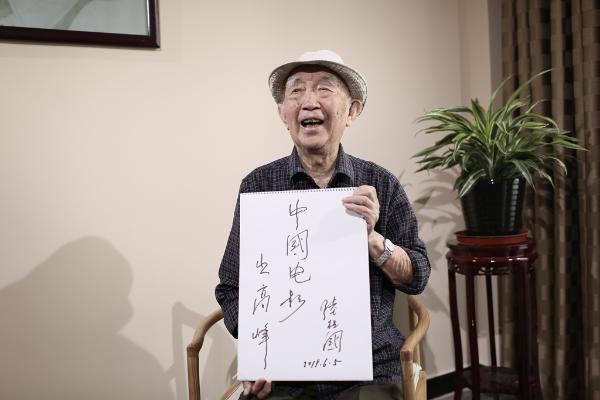 中國电影
出高峰
陸柱國
2019.6.5